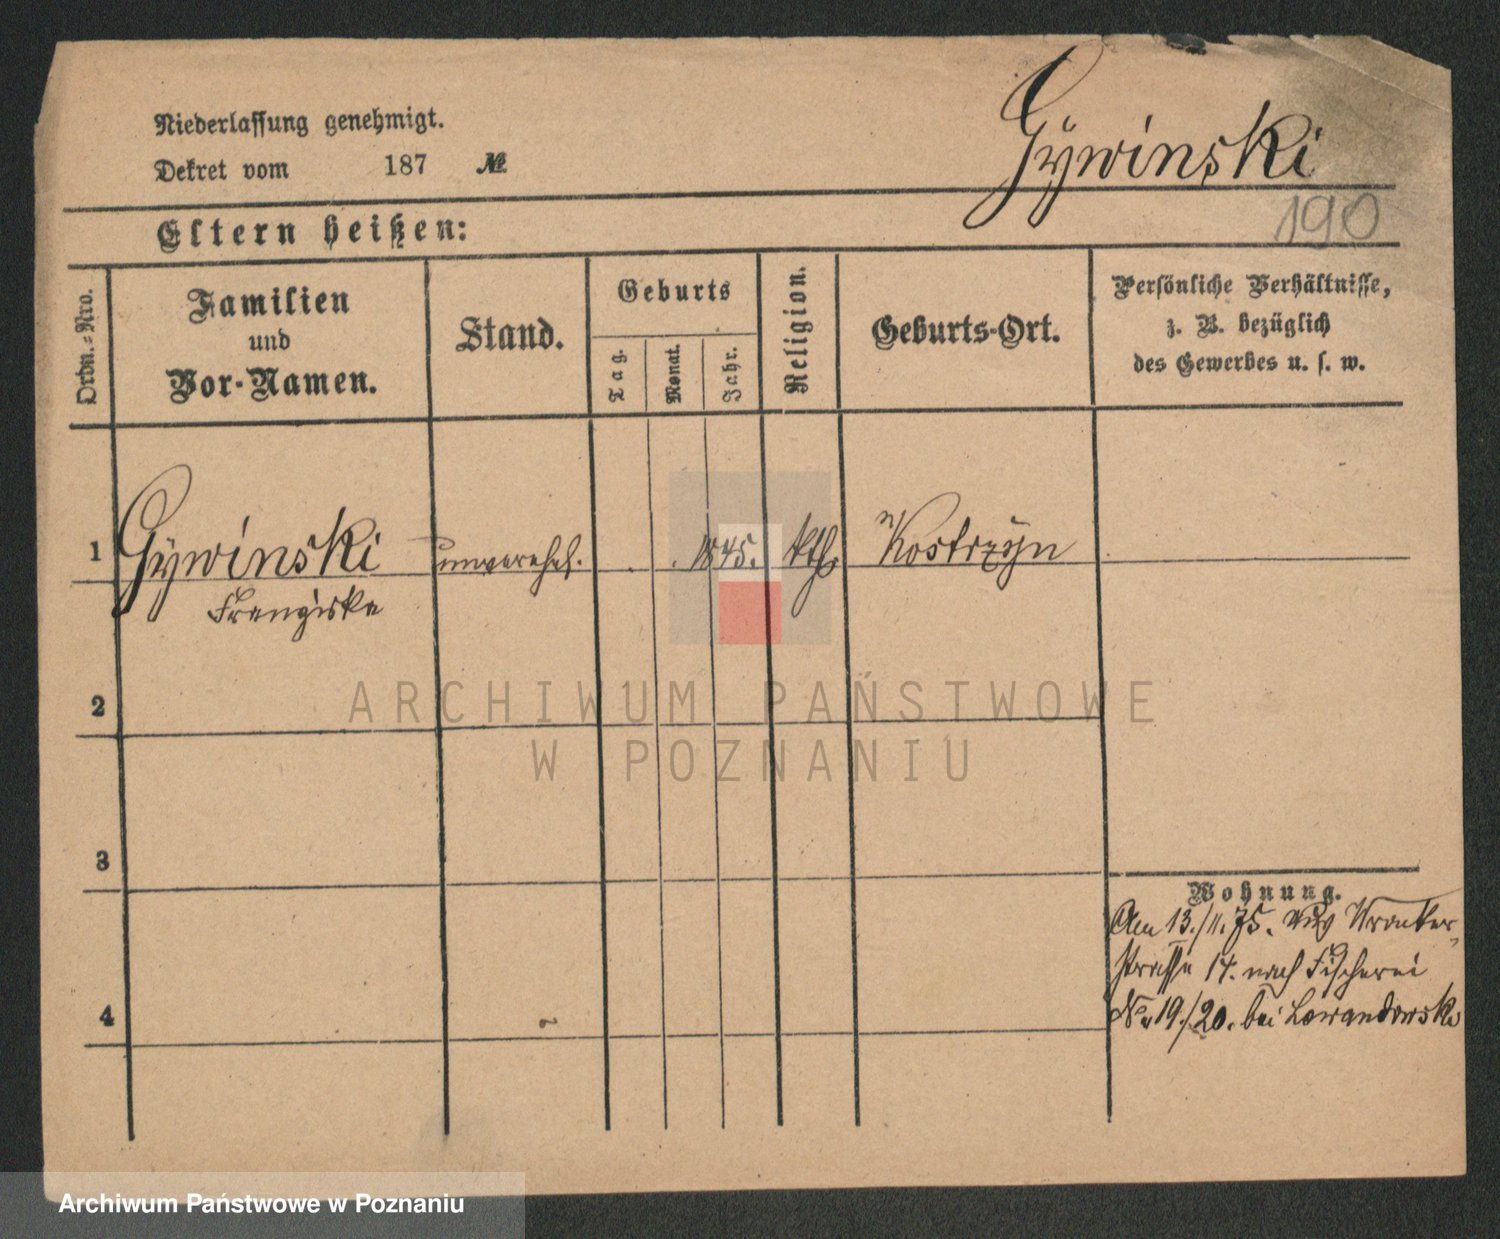 Niederlassung genehmigt.
Dekret vom 187 №
Gywinski
190
Eltern heißen:
Ordn.-Nro.
Familien
und
Vor-Namen.
Stand.
Geburts
Tag.
Monat.
Jahr.
Religion.
Geburts-Ort.
Persönliche Verhältnisse,
z. B. bezüglich
des Gewerbes u. s. w.
1 Gywinski unverehel. 1845. kth. Kostrzyn
Franziska
2
3
4
Wohnung.
Am 13./11. 75. aus Wronker
strasse 14. nach Fischerei
No 19./20. bei Lewandowski
ARCHIWUM PAŃSTWOWE
W POZNANIU
Archiwum Państwowe w Poznaniu